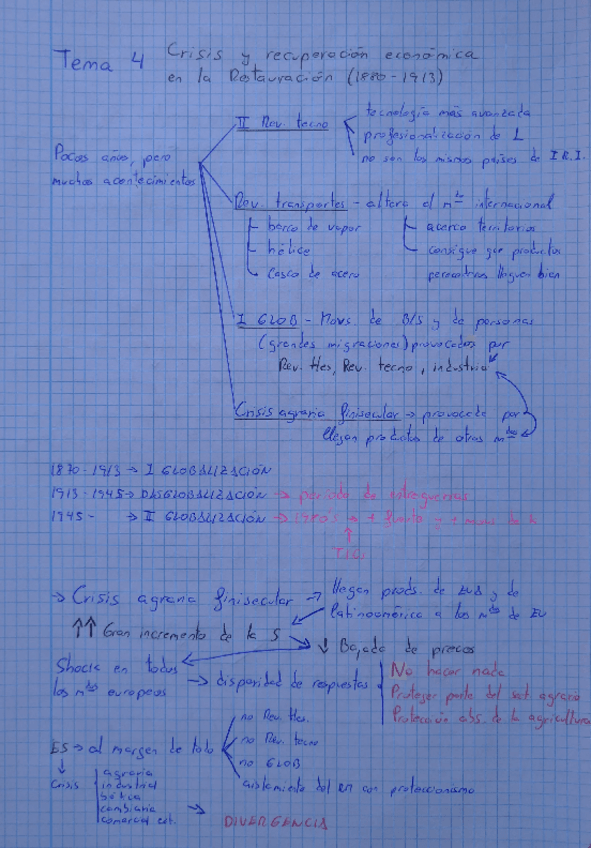 Tema 4 Crisis y recuperación económica
en la Restauración (1880-1913)
Pocos años, pero
muchos acontecimientos
II Rev. tecno
tecnología más avanzada
profesionalización de L
no son los mismos países de I R.I.
Rev. transportes - altera el mdo internacional
barco de vapor
hélice
casco de acero
acerca territorios
consigue que productos
perecederos lleguen bien
I GLOB - Movs. de B/S y de personas
(grandes migraciones) provocados por
Rev. ttes, Rev. tecno, industria
Crisis agraria finisecular → provocada por
llegan productos de otros mdos
1870-1913 → I GLOBALIZACIÓN
1913-1945 → DESGLOBALIZACIÓN → periodo de entreguerras
1945- → II GLOBALIZACIÓN → 1980's → + fuerte y + movs de k
↑
TICs
→ Crisis agraria finisecular → llegan prods. de EUA y de
latinoamérica a los mdos de EU
↑↑ Gran incremento de la S
↓ Bajada de precos
Shock en todos
los mdos europeos
→ disparidad de respuestas
No hacer nada
Proteger parte del sect. agrario
Protección abs. de la agricultura
ES → al margen de todo
no Rev. ttes.
no Rev. tecno
no GLOB
aislamiento del con proteccionismo
↓
crisis
agraria
industrial
bélica
cambiaria
comercial ext.
→ DIVERGENCIA